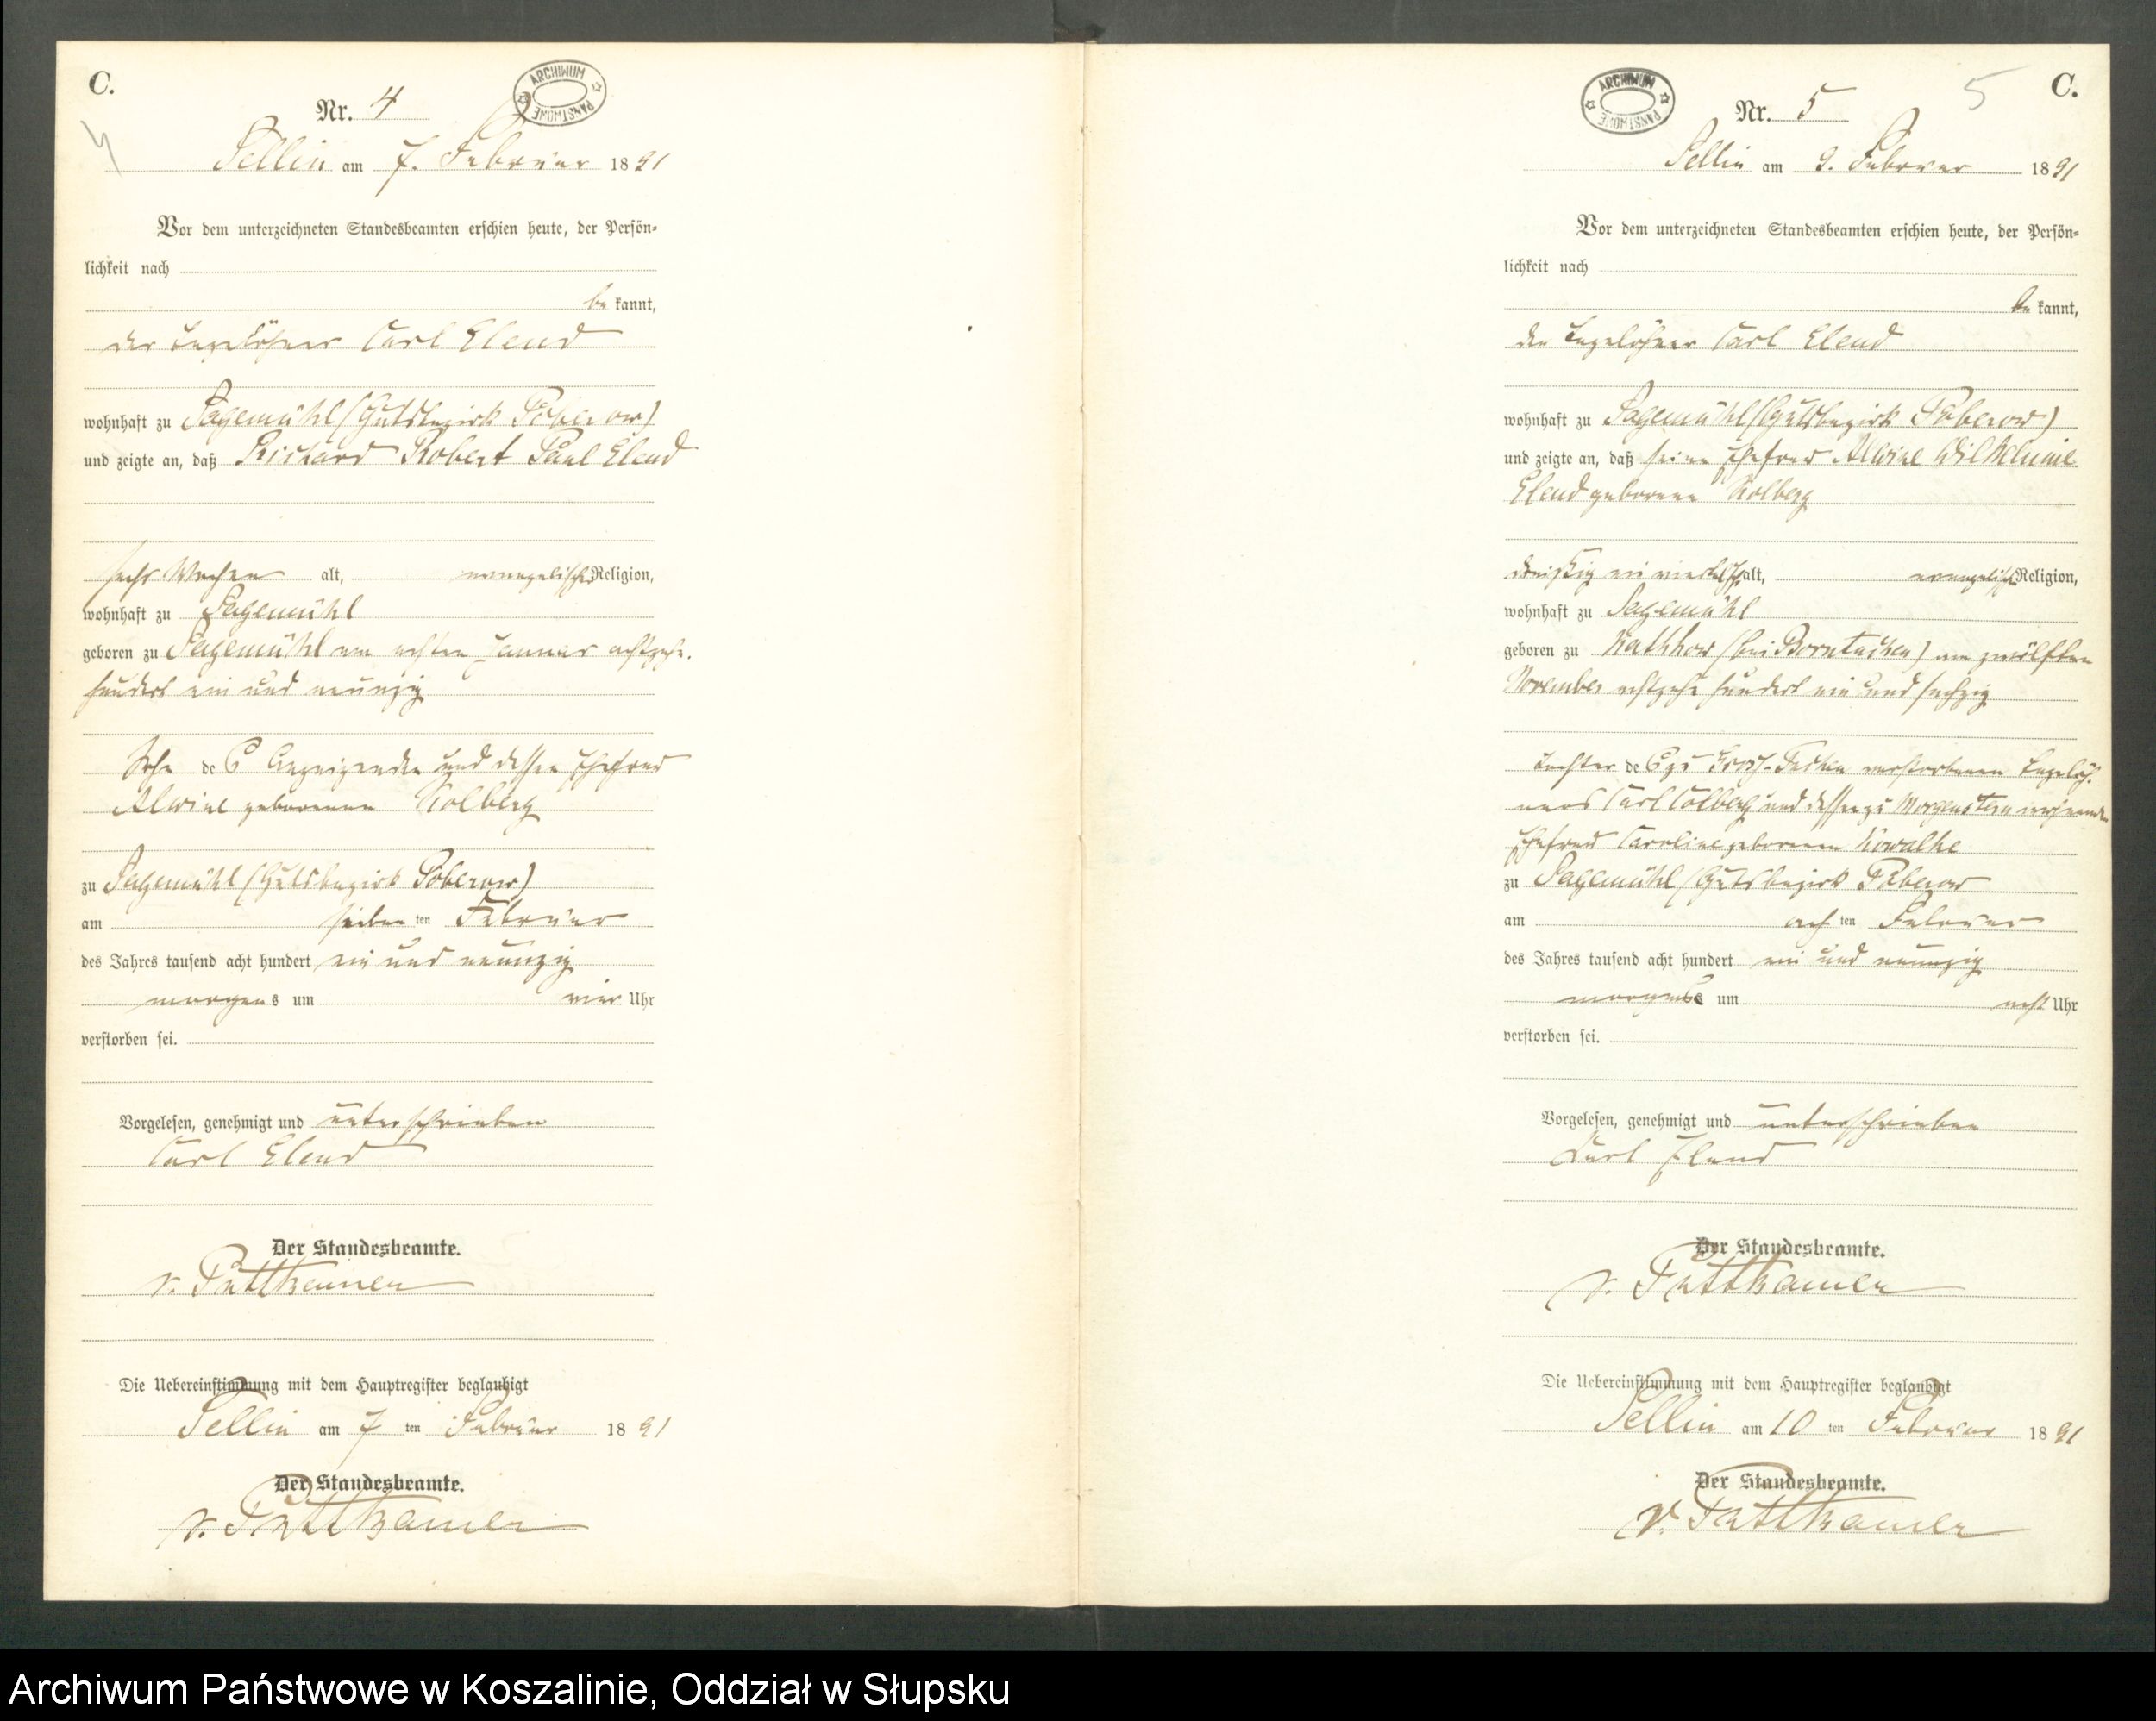 C.
ARCHIWUM PAŃSTWOWE
Nr. 4
4
Sellin am 7. Februar 1891
Vor dem unterzeichneten Standesbeamten erschien heute, der Persön-
lichkeit nach
be kannt,
der Tagelöhner Carl Elend
wohnhaft zu Sagemühl (Gutsbezirk Poberow)
und zeigte an, daß Richard Robert Paul Elend
sechs Wochen alt, evangelischer Religion,
wohnhaft zu Sagemühl
geboren zu Sagemühl am achten Januar achtzehn-
hundert ein und neunzig
Sohn des Anzeigenden und dessen Ehefrau
Alwine geborenen Kolberg
zu Sagemühl (Gutsbezirk Poberow)
am sieben ten Februar
des Jahres tausend acht hundert ein und neunzig
morgens um vier Uhr
verstorben sei.
Vorgelesen, genehmigt und unterschrieben
Carl Elend
Der Standesbeamte.
v. Puttkamer
Die Uebereinstimmung mit dem Hauptregister beglaubigt
Sellin am 7 ten Februar 1891
Der Standesbeamte.
v. Puttkamer
C.
5
ARCHIWUM PAŃSTWOWE
Nr. 5
Sellin am 9. Februar 1891
Vor dem unterzeichneten Standesbeamten erschien heute, der Persön-
lichkeit nach
be kannt,
der Tagelöhner Carl Elend
wohnhaft zu Sagemühl (Gutsbezirk Poberow)
und zeigte an, daß seine Ehefrau Alwine Wilhelmine
Elend geborene Kolberg
alt, evangelischer Religion,
wohnhaft zu Sagemühl
geboren zu Kathkow (bei Borntuchen) am zwölften
November achtzehn hundert ein und sechzig
Tochter des zu verstorbenen Tagelöh-
ners Carl Colberg und dessen zu Morgenstern wohnenden
Ehefrau Caroline geborenen Kowalke
zu Sagemühl (Gutsbezirk Poberow
am ach ten Februar
des Jahres tausend acht hundert ein und neunzig
morgens um acht Uhr
verstorben sei.
Vorgelesen, genehmigt und unterschrieben
Carl Elend
Der Standesbeamte.
v. Puttkamer
Die Uebereinstimmung mit dem Hauptregister beglaubigt
Sellin am 10 ten Februar 1891
Der Standesbeamte.
v. Puttkamer
Archiwum Państwowe w Koszalinie, Oddział w Słupsku